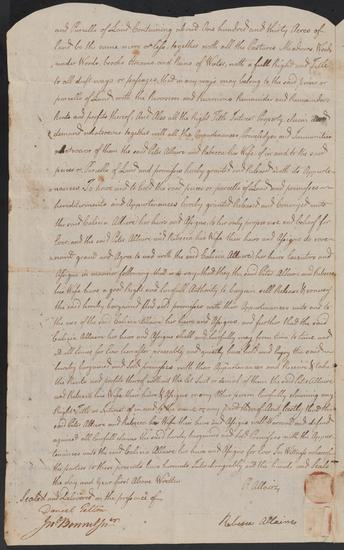 and Parcells of Land Containing about One hundred and thirty Acres of
Land be the same more or less, together with all the Pastures Meadows Woods
under Woods, brooks streams and Pains of Water, with a full Right and Title
to all drift ways or passages that in any ways may belong to the said piece or
parcells of Land with the Reversion and Reversions Remainder and Remainders
Rents and profits thereof And Also all the Right Title Interest Property claim and
demand whatsoever together with all the Appurtenances Priviledges and Immunities
whatsoever of them the said Peter Allaire and Rebecca his Wife of in and to the said
piece or Parcells of Land and premises hereby granted and Released with its Appurte-
nances To have and to hold the said piece or parcells of Land and premises
hereditaments and Appurtenances hereby granted Released and Conveyed unto
the said Allaire his heirs and Assigns to his only proper use and behoof for
Ever and the said Peter Allaire and Rebecca his Wife their heirs and Assigns do cove-
nant grand and Agree to and with the said Allaire his heirs Executors and
Assigns in manner following that is to say that they the said Peter Allaire and Rebecca
his Wife have a good Right and lawfull Authority to bargain sell Release & convey
the said hereby bargained and premises with their Appurtenances unto and to
the use of the said Allaire his heirs and Assigns, and further that the said
Allaire his heirs and Assigns shall and lawfully may from time to time and
at all times for Ever hereafter peaceably and quietly have hold and Enjoy the said
hereby bargained and premises with their Appurtenances and Receive & take
the Rents and profits thereof without the let Suit or denial of them the said Peter Allaire
and Rebecca his Wife their heirs & Assigns or any other person lawfully claiming any
Right Title or Interest of in and to the same or any part thereof And lastly that the
said Peter Allaire and Rebecca his Wife their heirs and Assigns will warrant and defend
against all lawfull claims the said hereby bargained and premises with the Appur-
tenances unto the said Allaire his heirs and Assigns for Ever In Witness whereof
the parties to these presents have hereunto Interchangeably set their hands and Seals
the day and year first Above Written
P. Allaire
Sealed and delivered in the presence of
Daniel
Rebecca Allaire